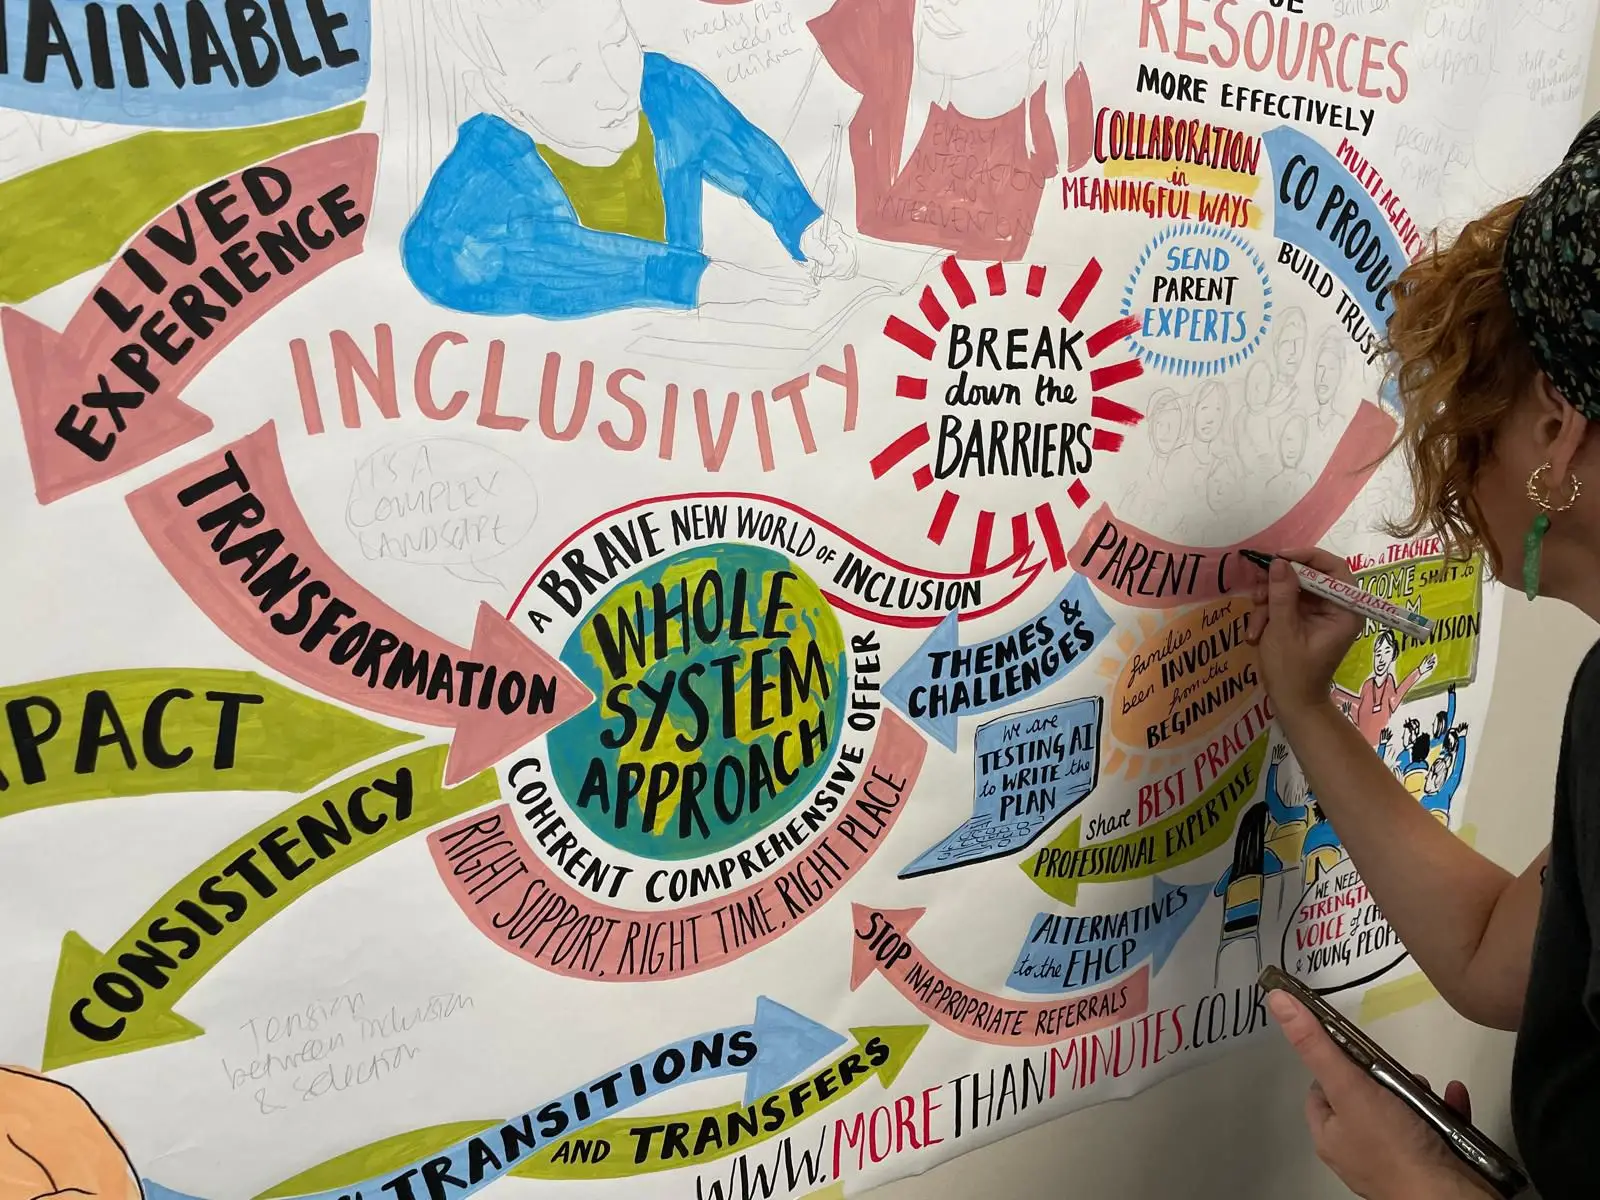 AINABLE
LIVED
EXPERIENCE
TRANSFORMATION
PACT
CONSISTENCY
INCLUSIVITY
meeting the
needs of
children
IT'S A
COMPLEX
LANDSCAPE
Tension
between inclusion
& selection
EVERY
INTERACTION
IS AN
INTERVENTION
RESOURCES
MORE EFFECTIVELY
COLLABORATION
in
MEANINGFUL WAYS
CO PRODUC
MULTI-AGENCY
BUILD TRUST
SEND
PARENT
EXPERTS
BREAK
down the
BARRIERS
A BRAVE NEW WORLD OF INCLUSION
WHOLE
SYSTEM
APPROACH
COHERENT COMPREHENSIVE OFFER
RIGHT SUPPORT, RIGHT TIME, RIGHT PLACE
THEMES &
CHALLENGES
PARENT C
families have
been INVOLVED
from the
BEGINNING
We are
TESTING AI
to WRITE the
PLAN
share BEST PRACTIC
PROFESSIONAL EXPERTISE
ALTERNATIVES
to the EHCP
STOP INAPPROPRIATE REFERRALS
NE is a TEACHER
COME SHIFT to
PROVISION
WE NEED
STRENGT
VOICE of CH
& YOUNG PEOP
TRANSITIONS
AND TRANSFERS
WWW.MORETHANMINUTES.CO.UK